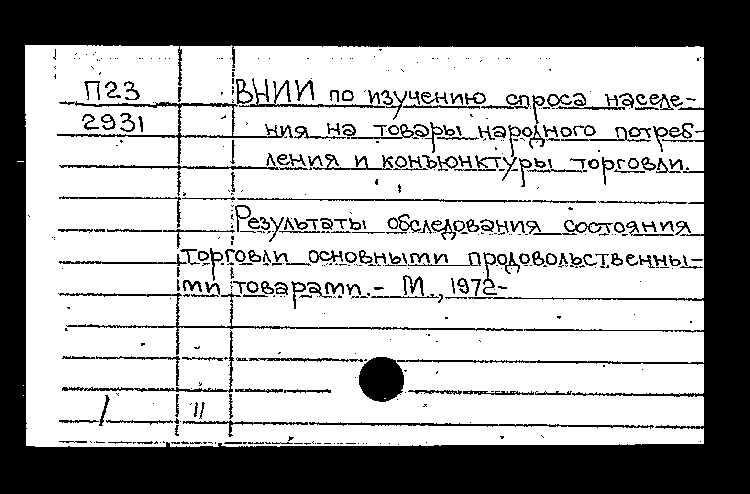 П23 ВНИИ по изучению спроса населе-
2931 ния на товары народного потреб-
ления и конъюнктуры торговли.
Результаты обследования состояния
торговли основными продовольственны-
ми товарами.- М., 1972-
/ 11